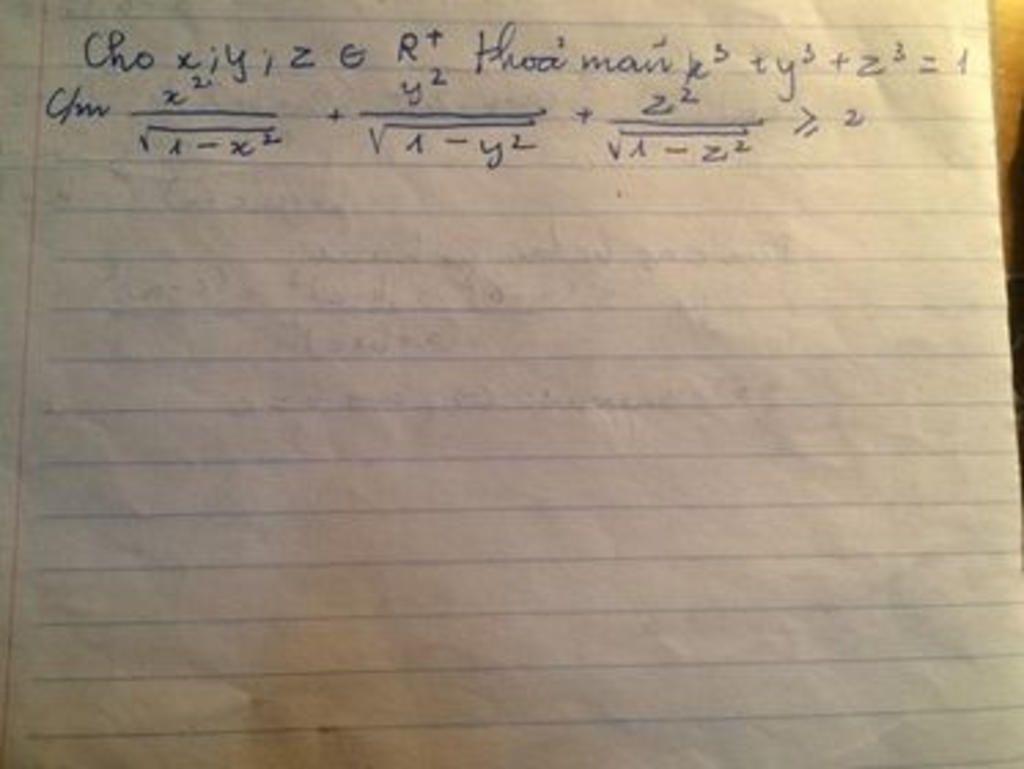 Cho x; y; z ∈ R⁺ thoả mãn x³ + y³ + z³ = 1
C/m x²/√(1 - x²) + y²/√(1 - y²) + z²/√(1 - z²) ≥ 2